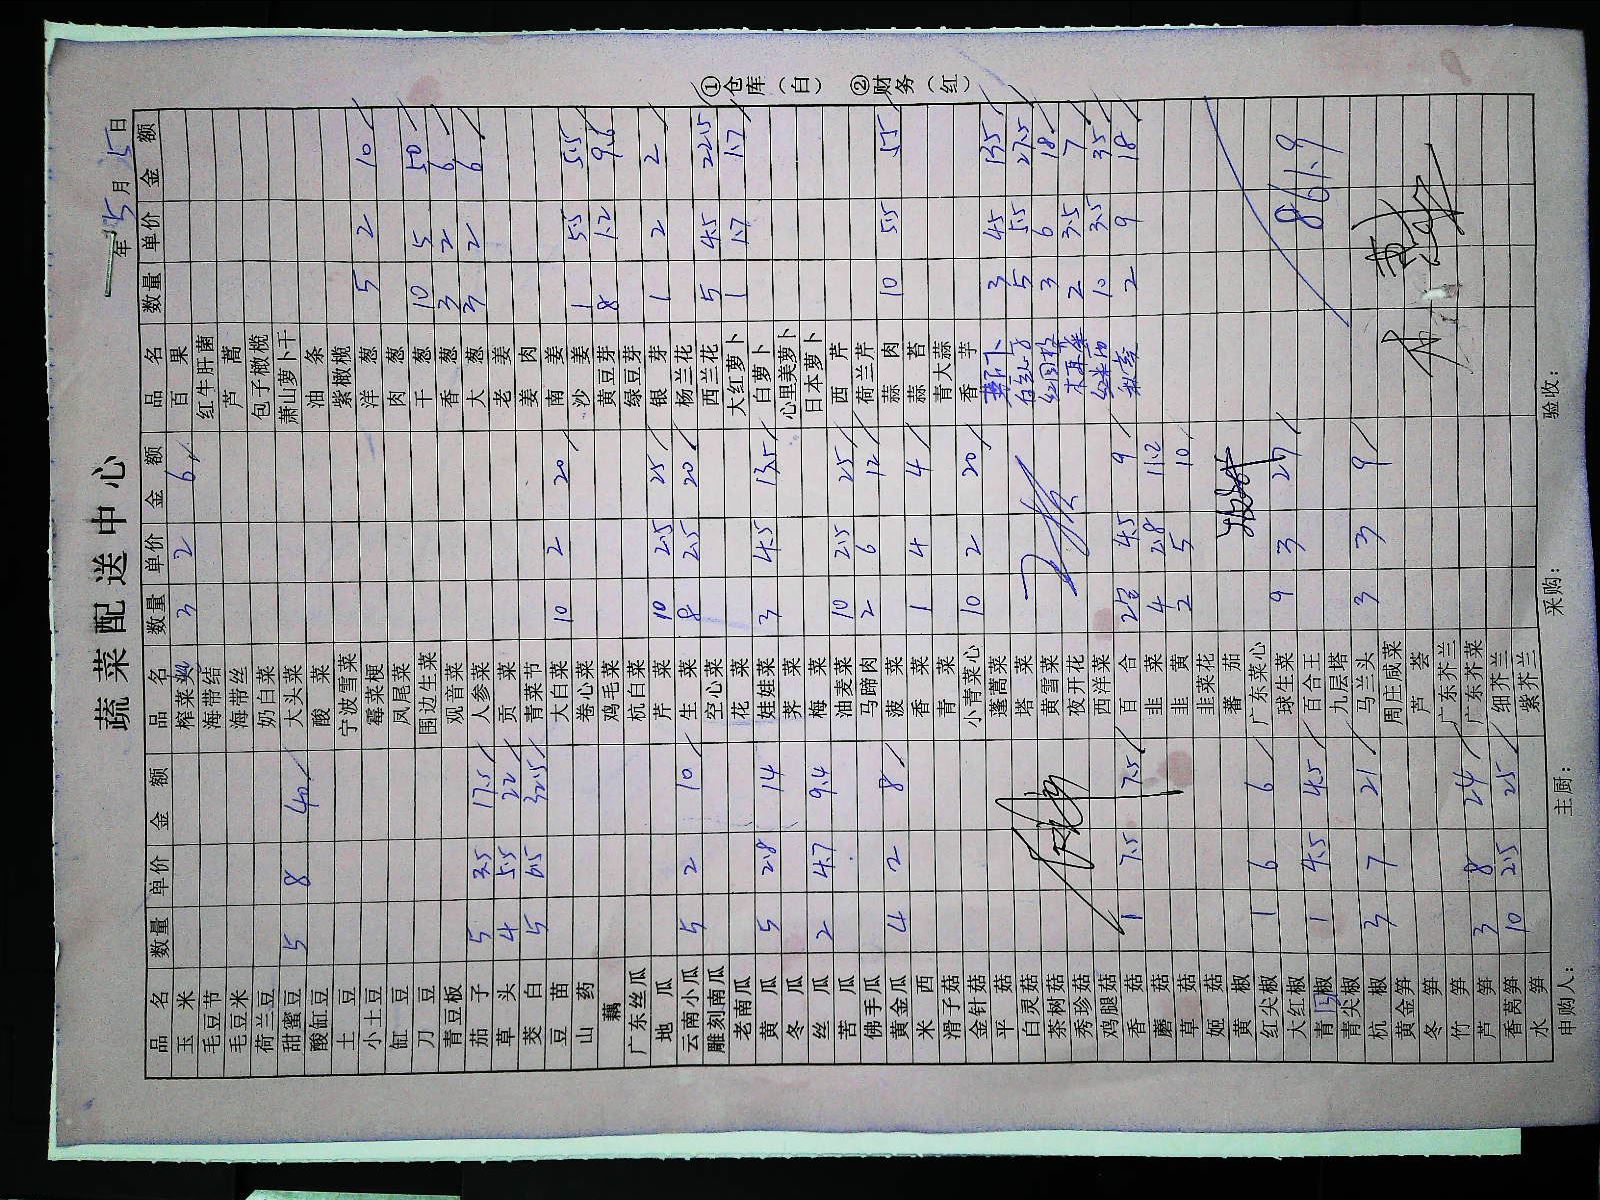 蔬菜配送中心
年 5月 5日
品名 数量 单价 金额 品名 数量 单价 金额 品名 数量 单价 金额
玉米 榨菜丝 3 2 6 百果
毛豆节 海带结 红牛肝菌
毛豆米 海带丝 芦蒿
荷兰豆 奶白菜 包子橄榄
甜蜜豆 5 8 40 大头菜 萧山萝卜干
酸缸豆 酸菜 油条
土豆 宁波雪菜 紫橄榄
小土豆 霉菜梗 洋葱 5 2 10
缸豆 凤尾菜 肉葱
刀豆 围边生菜 干葱 10 5 50
青豆板 观音菜 香葱 3 2 6
茄子 5 3.5 17.5 人参菜 大葱 3 2 6
草头 4 5.5 22 贡菜 老姜
茭白 5 6.5 32.5 青菜节 姜肉
豆苗 大白菜 10 2 20 南姜
山药 卷心菜 沙姜 1 5.5 5.5
藕 鸡毛菜 黄豆芽 8 1.2 9.6
广东丝瓜 杭白菜 绿豆芽
地瓜 芹菜 10 2.5 25 银芽 1 2 2
云南小瓜 5 2 10 生菜 8 2.5 20 杨兰花
雕刻南瓜 空心菜 西兰花 5 4.5 22.5
老南瓜 花菜 大红萝卜 1 1.7 1.7
黄瓜 5 2.8 14 娃娃菜 3 4.5 13.5 白萝卜
冬瓜 荠菜 心里美萝卜
丝瓜 2 4.7 9.4 梅菜 日本萝卜
苦瓜 油麦菜 10 2.5 25 西芹
佛手瓜 马蹄肉 2 6 12 荷兰芹
黄金瓜 4 2 8 菠菜 蒜肉 10 5.5 55
米西 香菜 1 4 4 蒜苔
滑子菇 青菜 青大蒜
金针菇 小青菜心 10 2 20 香芋
平菇 蓬蒿菜 萝卜 3 4.5 13.5
白灵菇 塔菜 5 5.5 27.5
茶树菇 黄雪菜 红圆椒 3 6 18
秀珍菇 夜开花 木耳菜 2 3.5 7
鸡腿菇 西洋菜 红米苋 10 3.5 35
香菇 1 7.5 7.5 百合 2包 4.5 9 秋葵 2 9 18
蘑菇 韭菜 4 2.8 11.2
草菇 韭黄 2 5 10
姬菇 韭菜花
黄椒 蕃茄
红尖椒 1 6 6 广东菜心
大红椒 球生菜 9 3 27 861.9
青椒 1 4.5 4.5 百合王
青尖椒 九层塔
杭椒 3 7 21 马兰头 3 3 9
黄金笋 周庄咸菜
冬笋 芦荟
竹笋 广东芥兰
芦笋 3 8 24 广东芥菜
香莴笋 10 2.5 25 细芥兰
水笋 紫芥兰
申购人： 主厨： 采购： 验收：
①仓库（白） ②财务（红）